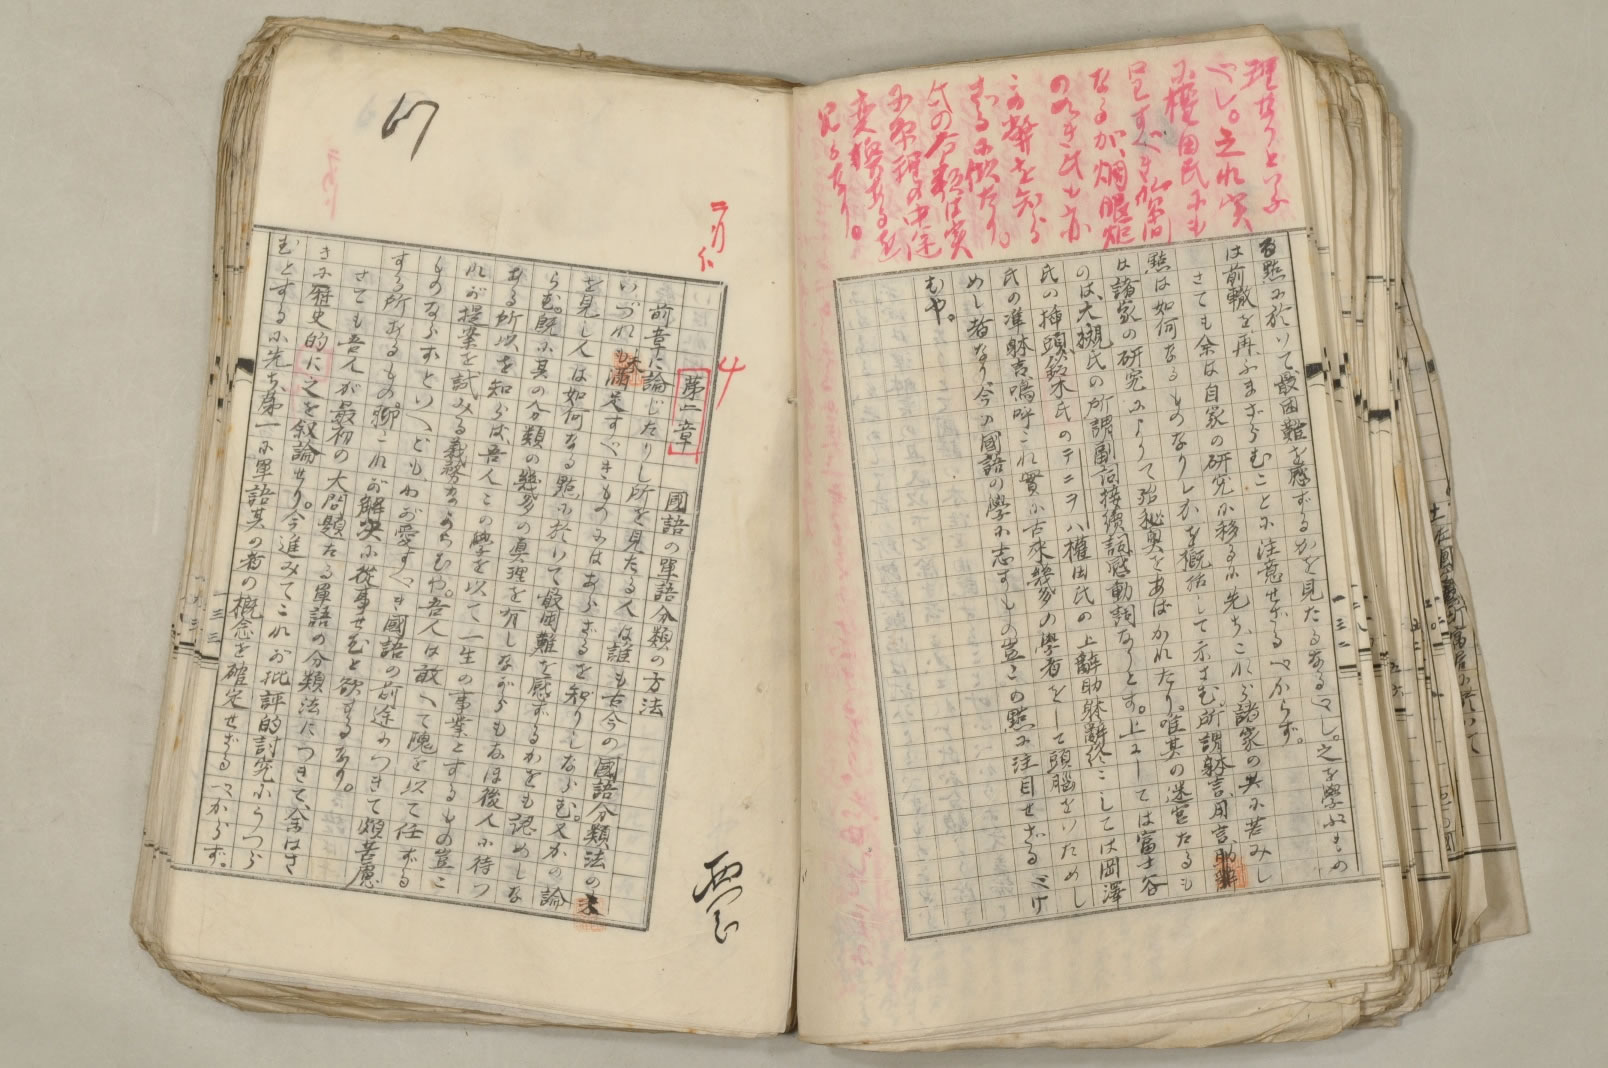 理せりといふ
べし。之れ実
に権田氏にも
呈すべき
なるが、
の如き氏も亦
この弊を知ら
ざるに似たり。
氏の分類は実
に
変換あるを
見るなり。
る點に於いて最困難を感ずるかを見たるなるべし。之を學ぶもの
は前轍を再ふまざらむことに注意せざるべからず。
さても余は自家の研究に移るに先ち、これら諸家の共に苦みし
點は如何なるものなりしかを概括して示さむ。所謂躰言、用言、助辭
は諸家の研究によりて殆秘奥をあばかれたり。唯其の迷宮たるも
のは、大槻氏の所謂副詞接續詞感動詞なりとす。上にしては富士谷
氏の挿頭、鈴木氏のテニヲハ權田氏の上辭助躰辭、終にしては岡澤
氏の準躰言嗚呼これ實に古來幾多の學者をして頭腦をいためし
めし者なり今の國語の學に志すもの豈この點に注目せざるべけ
むや。
67
第二章 國語の單語分類の方法
前章に論じたりし所を見たる人は誰も古今の國語分類法の未
いづれも滿足すべきものにはあらざるを知りしならむ。又かの論
を見し人は如何なる點に於いて最困難を感ずるかをも認めしな
らむ。既に其の分類の幾多の眞理を有しながらもなほ後人に待つ
ある所以を知らば、吾人この學を以て一生の事業とするもの豈こ
れが提案を試みる義務なからむや。吾人は敢へて愧を以て任ずる
ものならずといへども、わが愛すべき國語の前途につきて頗苦慮
する所あるもの、聊これが解決に從事せむと欲するなり。
さても吾人が最初の大問題たる單語の分類法につきて、余はさ
きに歴史的に之を叙論せり。今進みてこれが批評的討究にうつら
むとするに先ち、第一に單語其の者の概念を確定せざるべからず。
一三三
一三二